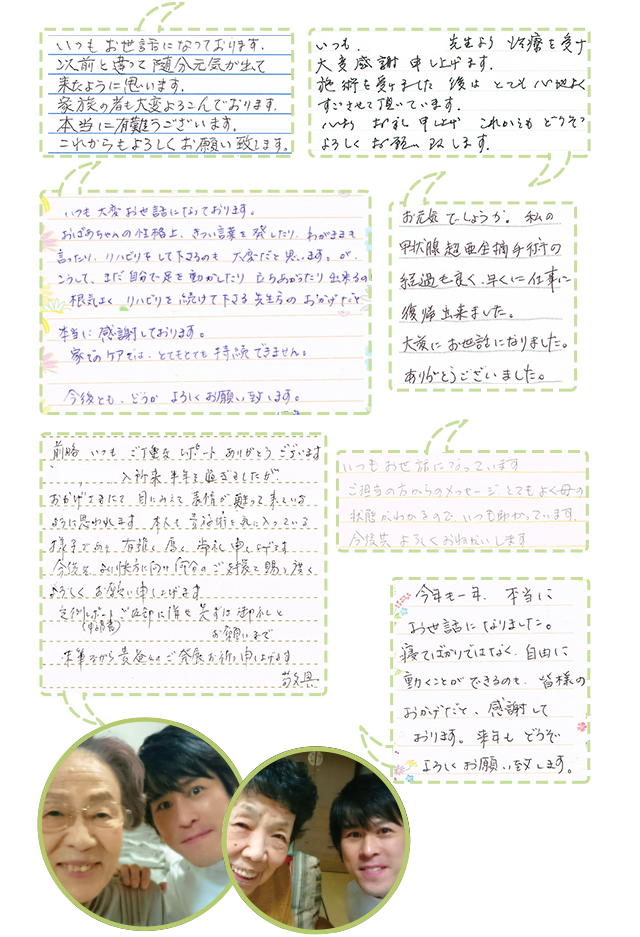 いつもお世話になっております.
以前と違って随分元気が出て
来たように思います.
家族の者も大変よろこんでおります.
本当に有難うございます.
これからもよろしくお願い致します.
いつも、 先生より治療を受け
大変感謝申し上げます.
施術を受けました後はとても心地よく
すごさせて頂いています.
心よりお礼申し上げ これからもどうぞ
よろしくお願い致します.
いつも大変お世話になっております。
おばあちゃんの性格上、きつい言葉を発したり、わがままを
言ったり、リハビリをして下さるのも大変だと思います。が、
こうして、まだ自分で足を動かしたり 立ちあがったり出来るの
根気よくリハビリを続けて下さる先生方のおかげだと
本当に感謝しております。
家でのケアでは、とてもとても持続できません。
今後とも、どうかよろしくお願い致します。
お元気でしょうか。私の
甲状腺超亜全摘手術の
経過も良く、早くに仕事に
復帰出来ました。
大変にお世話になりました。
ありがとうございました。
前略 いつもご丁寧なレポートありがとうございます
入所来半年を過ぎましたが
おかげさまにて 目にみえて表情が甦って来ている
ように思われます 本人も貴施術を気に入っている
様子であり 有難く厚く御礼申し上げます
今後もより快方に向け何分のご支援を賜り度く
よろしくお願い申し上げます
定例レポート
(申請書)
お願いまで
末筆ながら貴社のご発展お祈り申し上げます
いつもお世話になっています
ご担当の方からのメッセージ とてもよく母の
状態がわかるので、いつも助かっています.
今後共よろしくおねがいします
今年も一年、本当に
お世話になりました。
寝てばかりではなく、自由に
動くことができるのも、皆様の
おかげだと、感謝して
おります。来年もどうぞ
よろしくお願い致します。